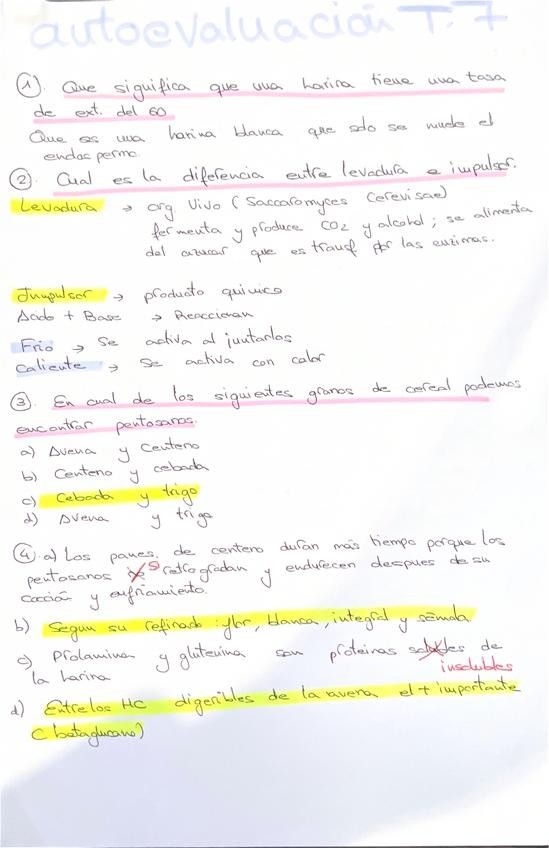 autoevaluación T.7
① Que significa que una harina tiene una tasa
de ext. del 60
Que es una harina blanca que sdo se muele el
endospermo.
② Cual es la diferencia entre levadura e impulsor.
Levadura → org vivo (Saccaromyces Cerevisae)
fermenta y produce CO2 y alcohol; se alimenta
del azucar que es transf por las enzimas.
Impulsor → producto quimico
Acido + Base → Reaccionan
Frio → Se activa al juntarlos
Caliente → Se activa con calor
③ En cual de los siguientes granos de cereal podemos
encontrar pentosanos.
a) Avena y Centeno
b) Centeno y cebada
c) Cebada y trigo
d) Avena y trigo
④ a) Los panes. de centeno duran más tiempo porque los
pentosanos se retrogradan y endurecen despues de su
cocción y enfriamiento.
b) Segun su refinado: flor, blanca, integral y sémola
c) Prolamina y glutenina son proteinas solubles de
insolubles
la harina
d) Entre los HC digeribles de la avena el + importante
(betaglucano)